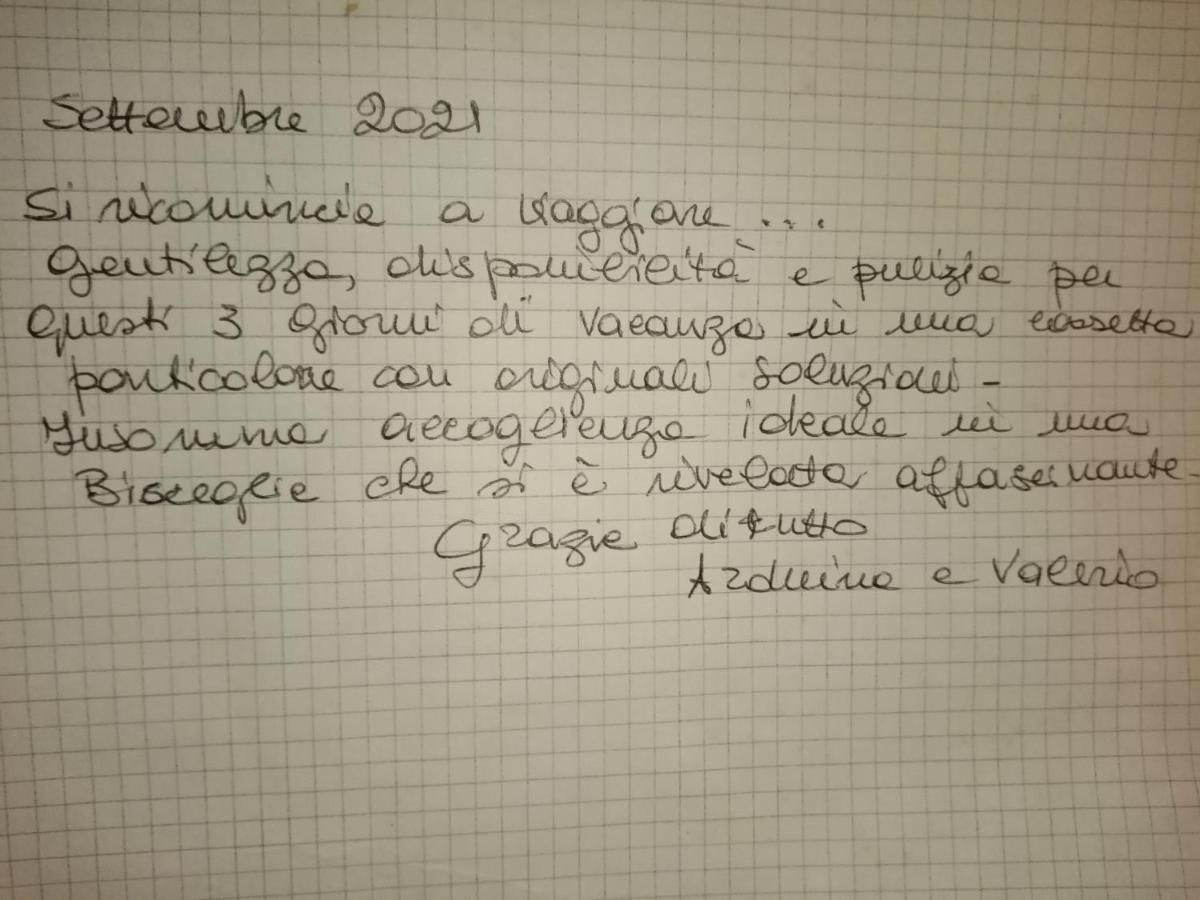 Settembre 2021
Si ricomincia a viaggiare ...
Gentilezza, disponibilità e pulizia per
questi 3 giorni di vacanza in una casetta
particolare con originali soluzioni -
Insomma accoglienza ideale in una
Bisceglie che si è rivelata affascinante -
Grazie di tutto
Arduina e Valerio